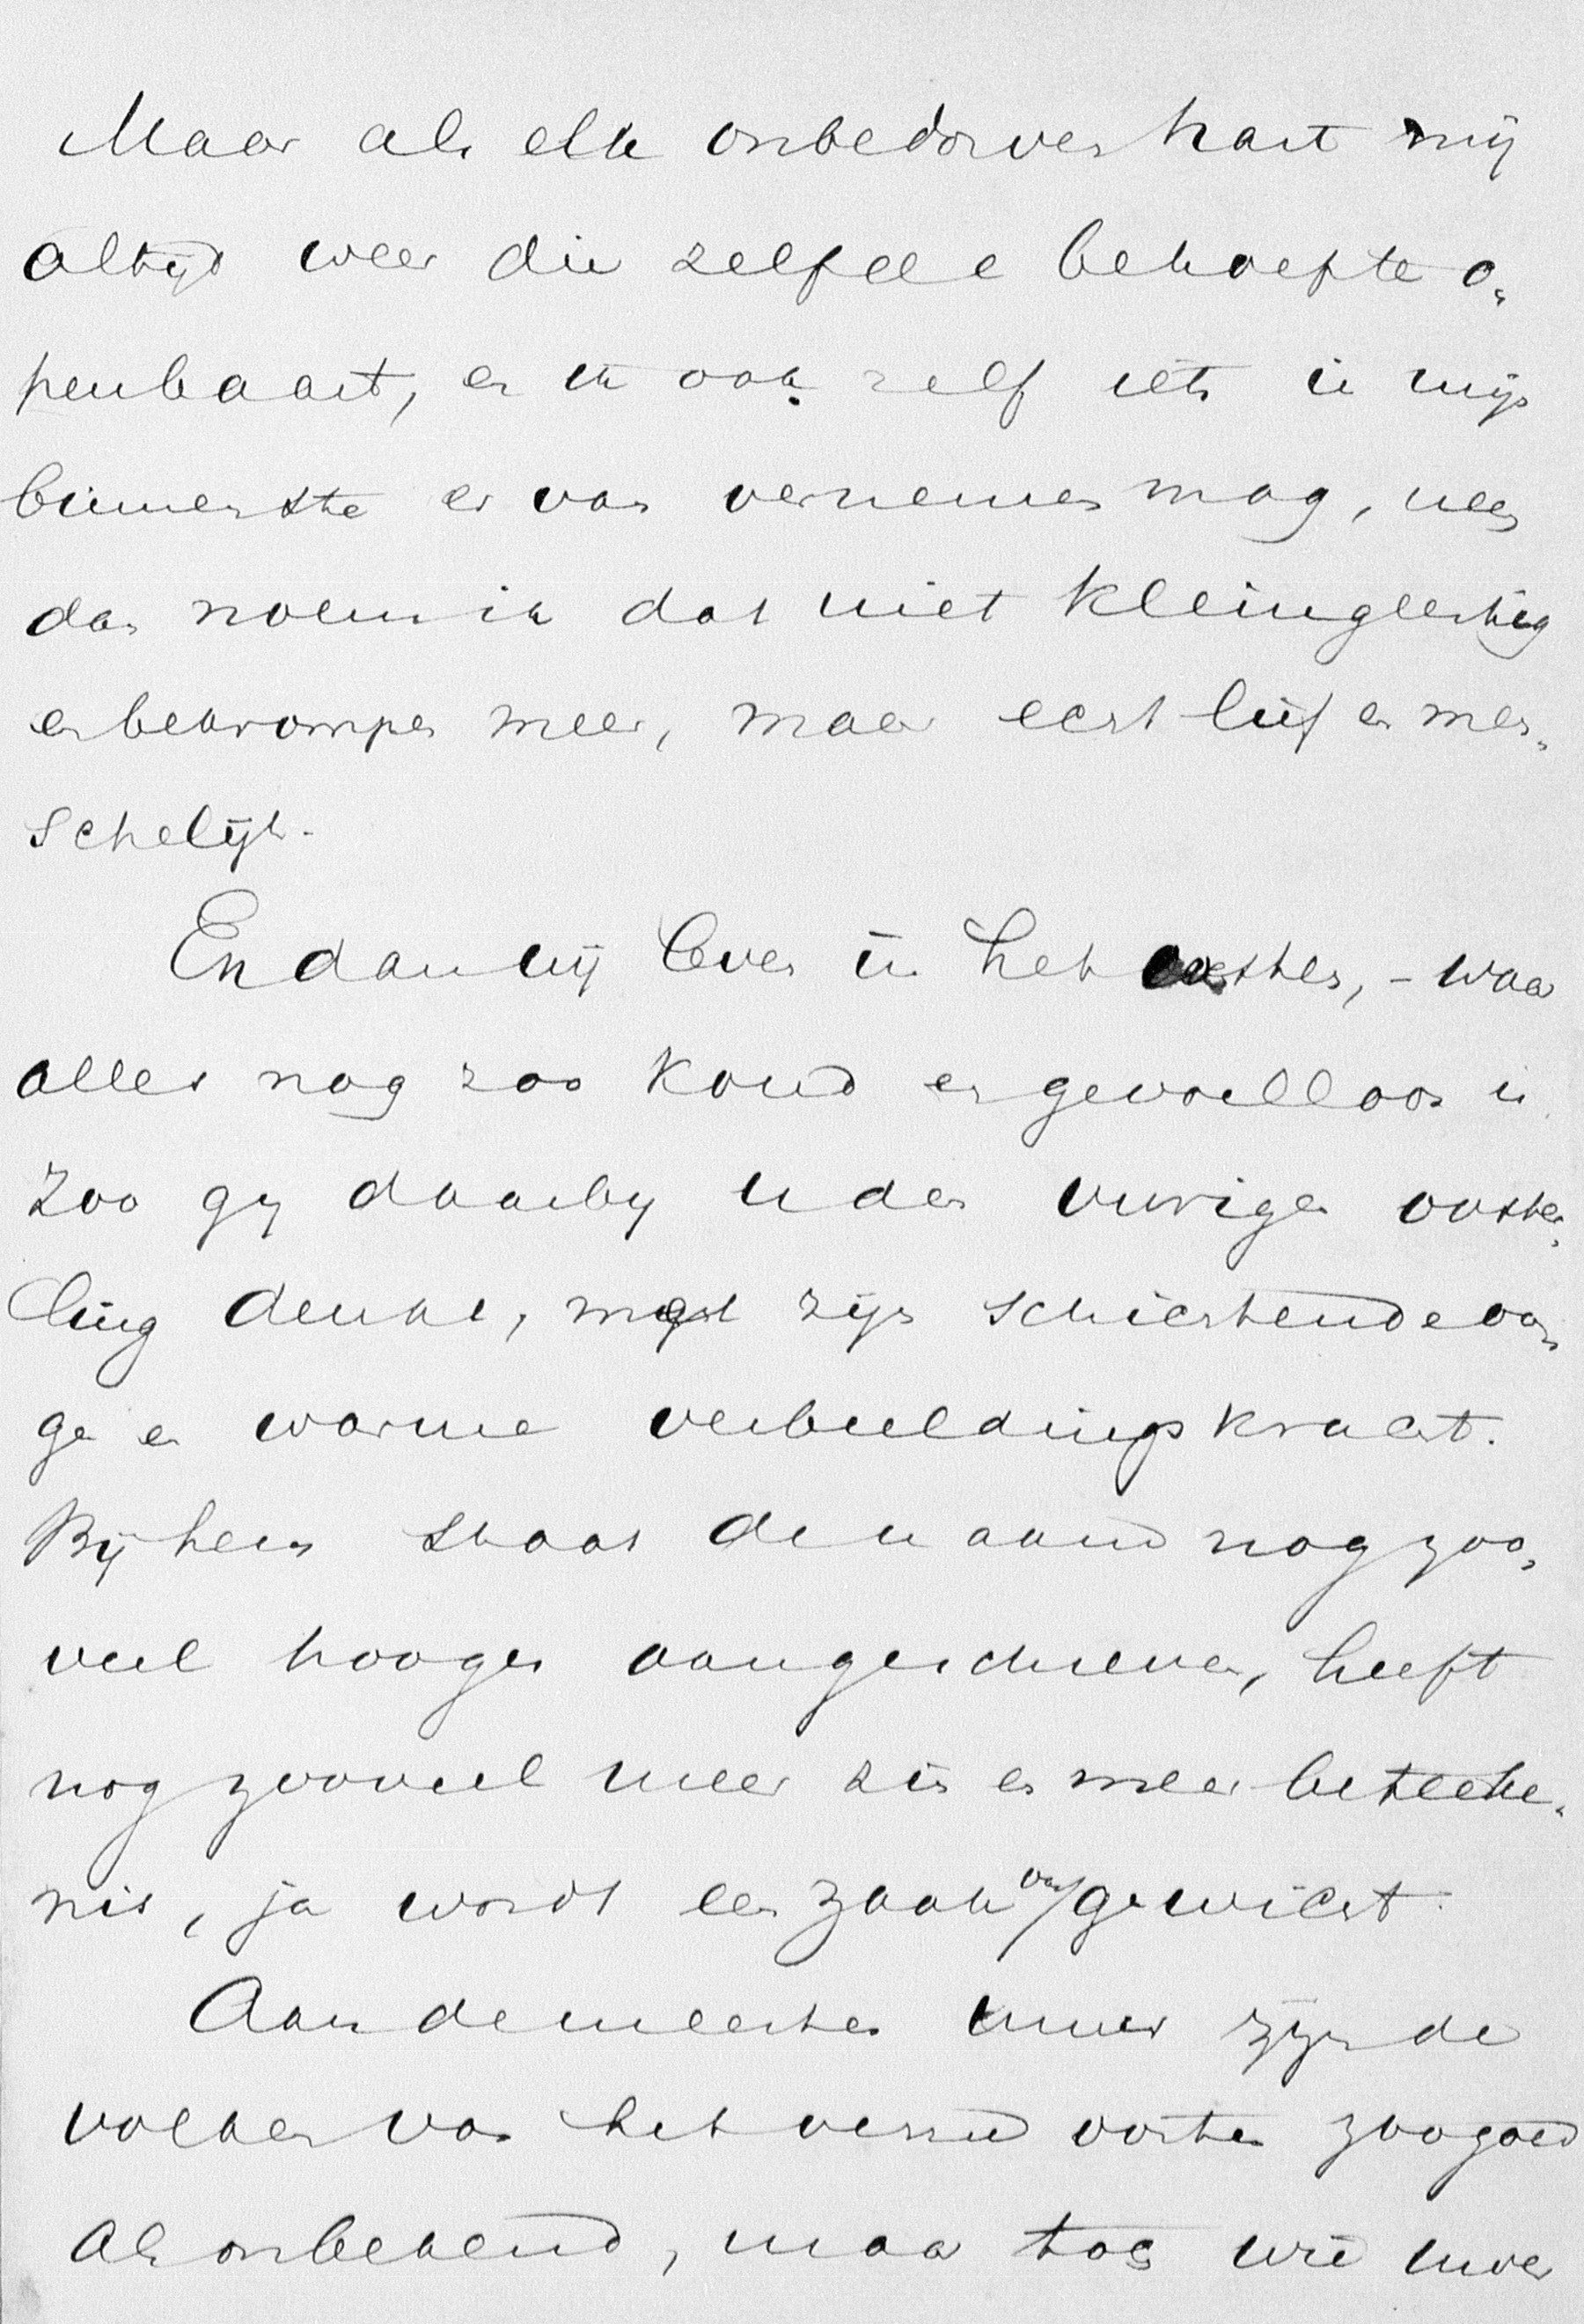 Maar als elk onbedorven hart mij
altijd weer die zelfde behoefte o„
penbaart, en ik ook zelf iets in mijn
binnenste er van vernemen mag, neen
dan noem ik dat niet kleingeestig
en bekrompen meer, maar echt lief en men„
schelijk.
En dan wij leven in het westen, - waar
alles nog zoo koud en gevoelloos is
Zoo gy daarby u den vurigen ooster„
ling denkt, met zijn schitterende oo„
ge en warme verbeeldingskracht.
Bij hem staat de maand nog zoo„
veel hooger aangeschreven, heeft
nog zooveel meer zin en meer beteeke„
nis, ja wordt een zaak van gewicht.
Aan de meesten uwer zijn de
volken van het verre oosten zoogoed
als onbekend, maar toch wie uwer